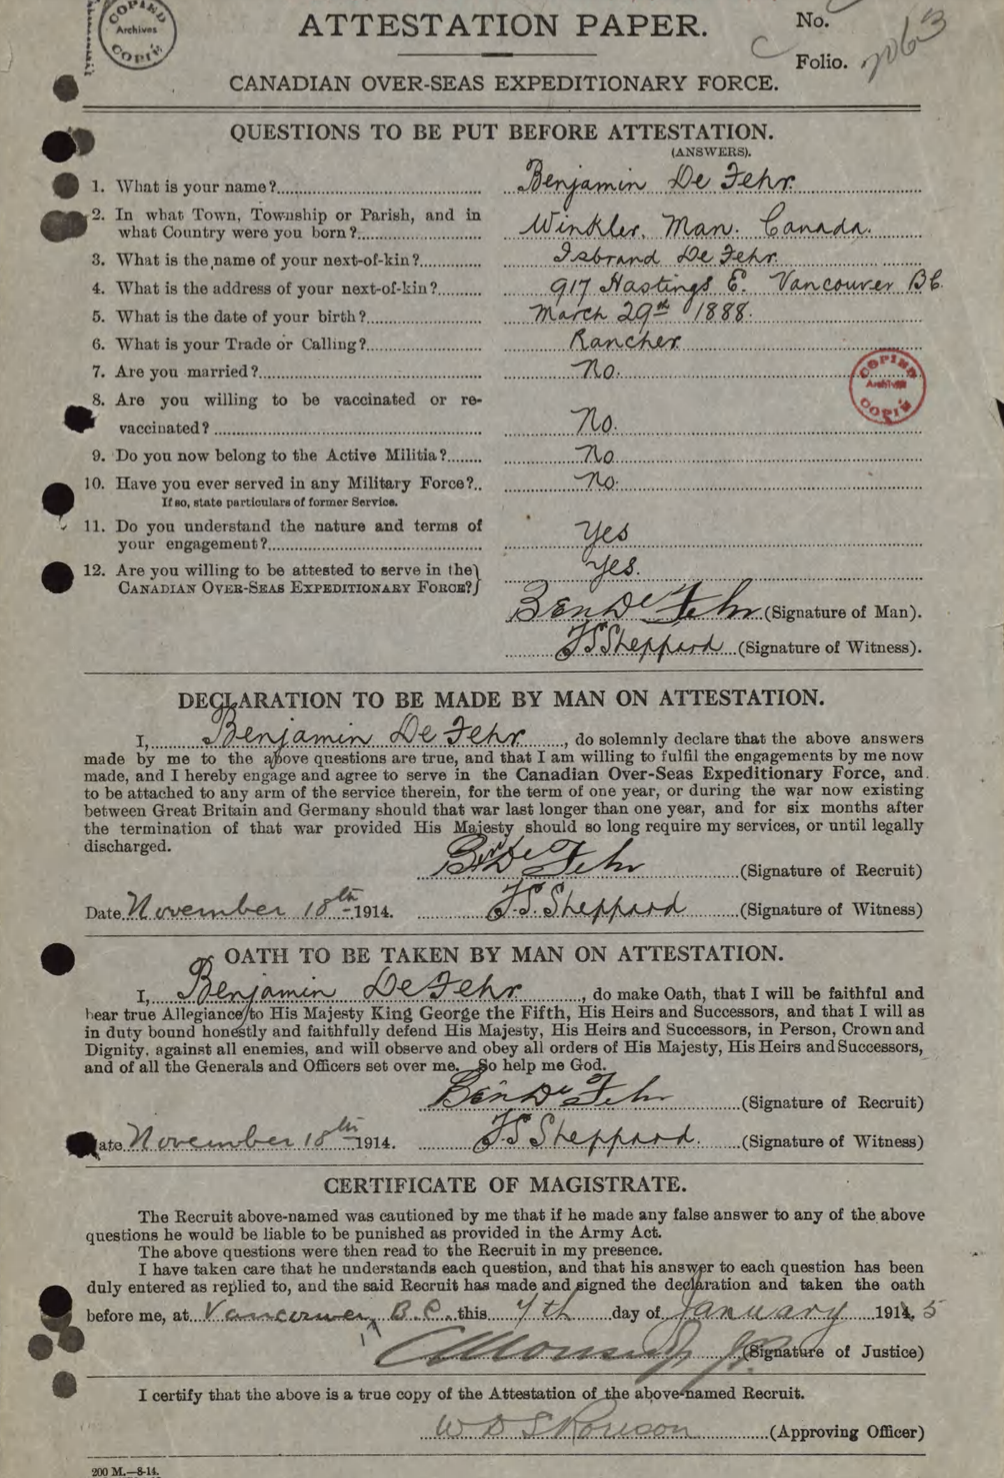 COPIED
Archives
COPIÉ
ATTESTATION PAPER.
No.
Folio.
CANADIAN OVER-SEAS EXPEDITIONARY FORCE.
QUESTIONS TO BE PUT BEFORE ATTESTATION.
(ANSWERS).
1. What is your name? Benjamin De Fehr
2. In what Town, Township or Parish, and in
what Country were you born? Winkler. Man. Canada.
3. What is the name of your next-of-kin? Isbrand De Fehr
4. What is the address of your next-of-kin? 917 Hastings E. Vancouver BC.
5. What is the date of your birth? March 29th 1888.
6. What is your Trade or Calling? Rancher
7. Are you married? No.
COPIED
Archives
COPIÉ
8. Are you willing to be vaccinated or re-
vaccinated? No.
9. Do you now belong to the Active Militia? No
10. Have you ever served in any Military Force? No.
If so, state particulars of former Service.
11. Do you understand the nature and terms of
your engagement? Yes
12. Are you willing to be attested to serve in the
CANADIAN OVER-SEAS EXPEDITIONARY FORCE? Yes.
Ben De Fehr (Signature of Man).
FS Sheppard (Signature of Witness).
DECLARATION TO BE MADE BY MAN ON ATTESTATION.
I, Benjamin De Fehr, do solemnly declare that the above answers
made by me to the above questions are true, and that I am willing to fulfil the engagements by me now
made, and I hereby engage and agree to serve in the Canadian Over-Seas Expeditionary Force, and
to be attached to any arm of the service therein, for the term of one year, or during the war now existing
between Great Britain and Germany should that war last longer than one year, and for six months after
the termination of that war provided His Majesty should so long require my services, or until legally
discharged.
Ben De Fehr (Signature of Recruit)
Date November 18th 1914. F.S. Sheppard (Signature of Witness)
OATH TO BE TAKEN BY MAN ON ATTESTATION.
I, Benjamin De Fehr, do make Oath, that I will be faithful and
bear true Allegiance to His Majesty King George the Fifth, His Heirs and Successors, and that I will as
in duty bound honestly and faithfully defend His Majesty, His Heirs and Successors, in Person, Crown and
Dignity, against all enemies, and will observe and obey all orders of His Majesty, His Heirs and Successors,
and of all the Generals and Officers set over me. So help me God.
Ben De Fehr (Signature of Recruit)
ate November 18th 1914. FS Sheppard. (Signature of Witness)
CERTIFICATE OF MAGISTRATE.
The Recruit above-named was cautioned by me that if he made any false answer to any of the above
questions he would be liable to be punished as provided in the Army Act.
The above questions were then read to the Recruit in my presence.
I have taken care that he understands each question, and that his answer to each question has been
duly entered as replied to, and the said Recruit has made and signed the declaration and taken the oath
before me, at Vancouver, B.C. this 7th day of January 1914. 5
(Signature of Justice)
I certify that the above is a true copy of the Attestation of the above-named Recruit.
(Approving Officer)
200 M.—8-14.